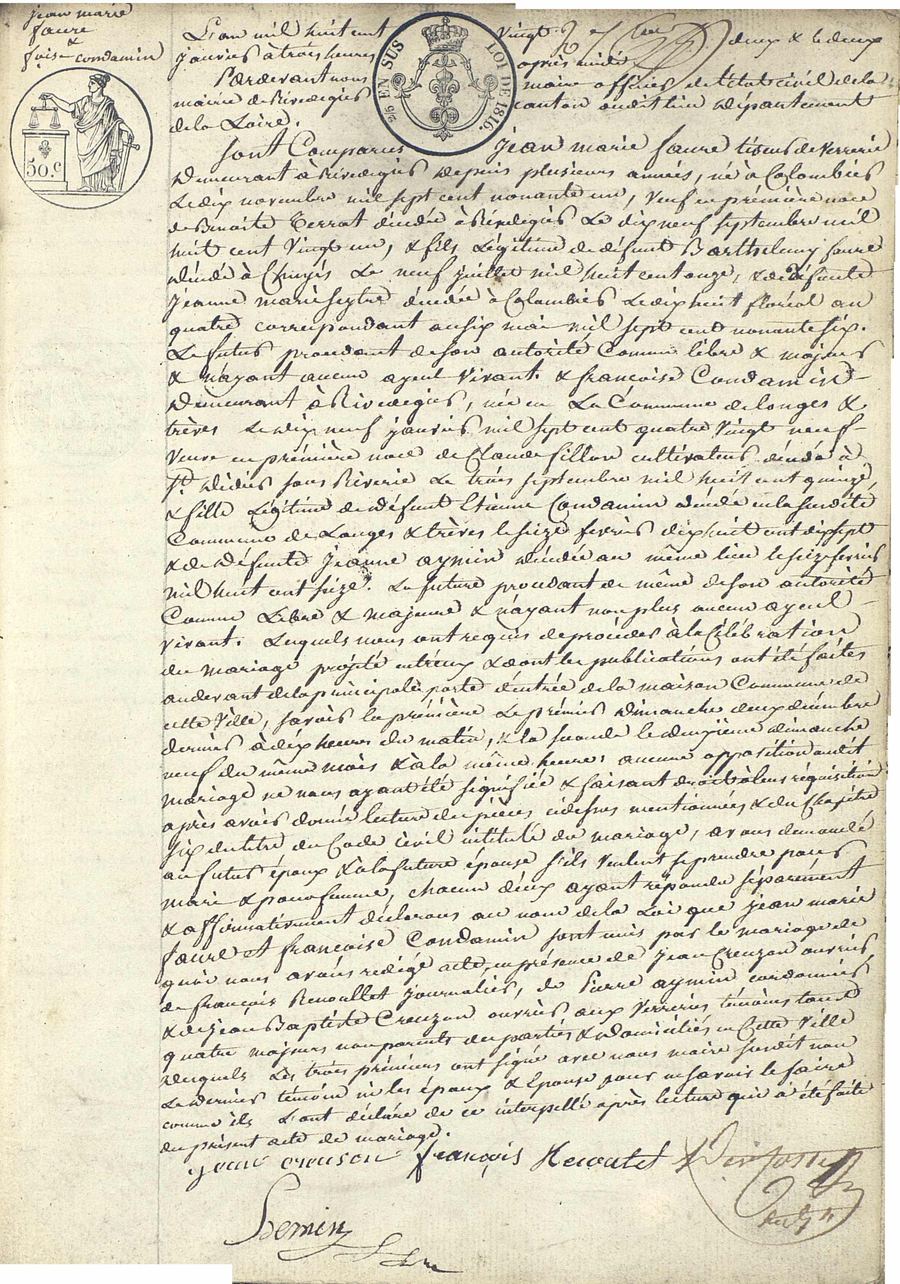 jean marie
faure
&
f.çoise condamin
50.c
EN SUS
LOI DE 1816.
L'an mil huit cent vingt deux & le deux
janvier à trois heures après midi
Pardevant nous maire officier de l'état civil de la
mairie de Rivedegier canton dudit lieu département
de la Loire.
sont Comparus jean marie faure tiseur de verrerie
demeurant à Rivedegier depuis plusieurs années, né à Colombier
Le dix novembre mil sept cent nonante un, veuf en première noce
de Benoite Terrat décédée à Rivedegier Le dix neuf septembre mil
huit cent vingt un, & fils Légitime de défunt Barthelemy faure
décédé à Le neuf juillet mil huit cent onze, & de défunte
jeanne marie décédée à Colombier Le dix huit floréal an
quatre correspondant au six mai mil sept cent nonante six.
Le futur procédant de son autorité comme libre & majeur
& n'ayant aucun ayeul vivant. & françoise Condamin
demeurant à Rivedegier, née en La Commune de Longes &
trèves Le dix neuf janvier mil sept cent quatre vingt neuf
veuve en première noce de Claude fillon cultivateur décédé à
St. didier sous Riverie Le trois septembre mil huit cent quinze,
& fille Légitime de défunt Etienne Condamin décédé en la susdite
Commune de Longes & trèves le seize février dix huit cent dix sept
& de défunte jeanne aymin décédée au même lieu le seize février
mil huit cent seize. La future procédant de même de son autorité
Comme Libre & majeure & n'ayant non plus aucun ayeul
vivant. Lesquels nous ont requis de procéder à la Célébration
du mariage projeté entreux & dont les publications ont été faites
au devant de la principale porte d'entrée de la maison Commune de
cette ville, savoir la première Le premier dimanche deux décembre
dernier à dix heures du matin, & la seconde le deuxième dimanche
neuf du même mois & à la même heure: aucune opposition audit
mariage ne nous ayant été signifiée & faisant droit à leur réquisition
après avoir donné lecture des pièces cidessus mentionnées & du Chapitre
six du titre du Code civil intitulé du mariage, avons demandé
au futur époux & à la future épouse s'ils veulent se prendre pour
mari & pour femme, chacun d'eux ayant répondu séparément
& affirmativement déclarons au nom de la Loi que jean marie
faure et françoise Condamin sont unis par le mariage de
quoi nous avons redigé acte, en présence de jean Creuzon ouvrier,
de françois Renoullet journalier, de Pierre aymin cordonnier,
& de jean Baptiste Creuzon ouvrier aux verreries, témoins tous
quatre majeurs non parents des parties & domiciliés en Cette ville
desquels Les trois premiers ont signé avec nous maire susdit non
Le dernier témoin ni les époux & épouse pour ne savoir le faire
comme ils L'ont déclaré de ce interpellé après lecture qui a été faite
du présent acte de mariage.
jean creuson françois Renoulet